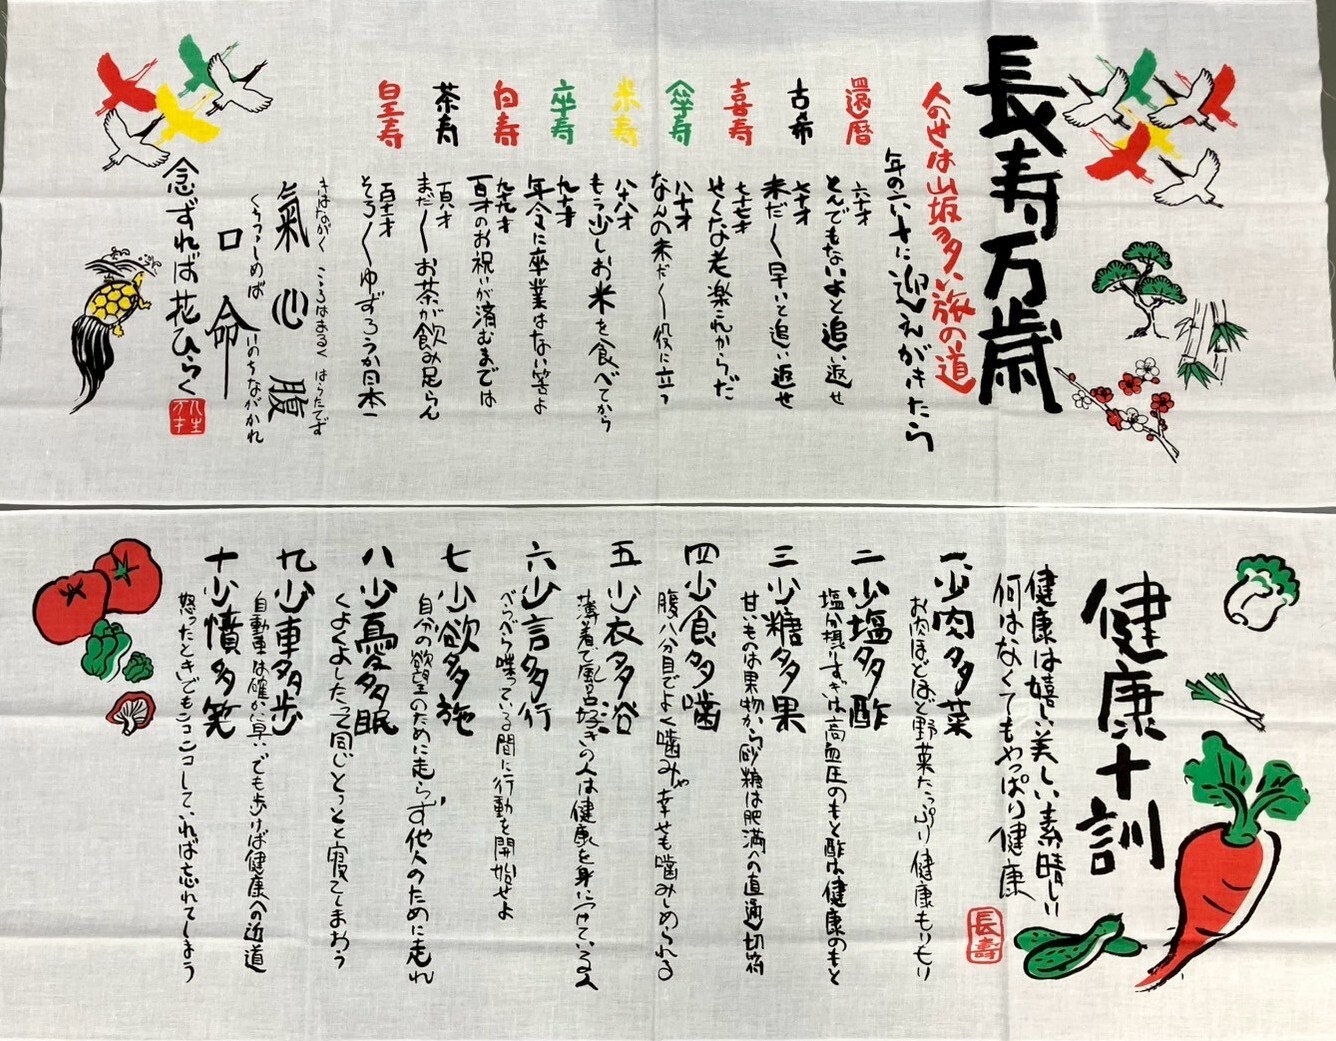 長寿万歳
人の世は山坂多い旅の道
年の六十に迎えがきたら
還暦
六十才
とんでもないよと追い返せ
古希
七十才
未だ〱早いと追い返せ
喜寿
七十七才
せくな老楽これからだ
傘寿
八十才
なんの未だ〱役に立つ
米寿
八十八才
もう少しお米を食べてから
卒寿
九十才
年令に卒業はない筈よ
白寿
九十九才
百才のお祝いが済むまでは
茶寿
百八才
まだ〱お茶が飲み足らん
皇寿
百十一才
そろ〱ゆずろうか日本一
きはながく こころはまるく はらたてず
氣 心 腹
くちつつしめば いのちながかれ
口 命
念ずれば花ひらく
人生
万才
健康十訓
健康は嬉しい美しい素晴しい
何はなくてもやっぱり健康
長壽
一、少肉多菜
お肉ほどほど野菜たっぷり健康もりもり
二 少塩多酢
塩分摂りすぎは高血圧のもと酢は健康のもと
三 少糖多果
甘いものは果物から砂糖は肥満への直通切符
四 少食多噛
腹八分目でよく噛みゃ幸せも噛みしめられる
五 少衣多浴
薄着で風呂好きの人は健康を身につけている人
六 少言多行
べらべら喋っている間に行動を開始せよ
七 少欲多施
自分の欲望のために走らず他人のために走れ
八 少憂多眠
くよくよしたって同じとっとと寝てしまおう
九 少車多歩
自動車は確か早いでも歩けば健康への近道
十 少憤多笑
怒ったときでもニコニコしていれば忘れてしまう